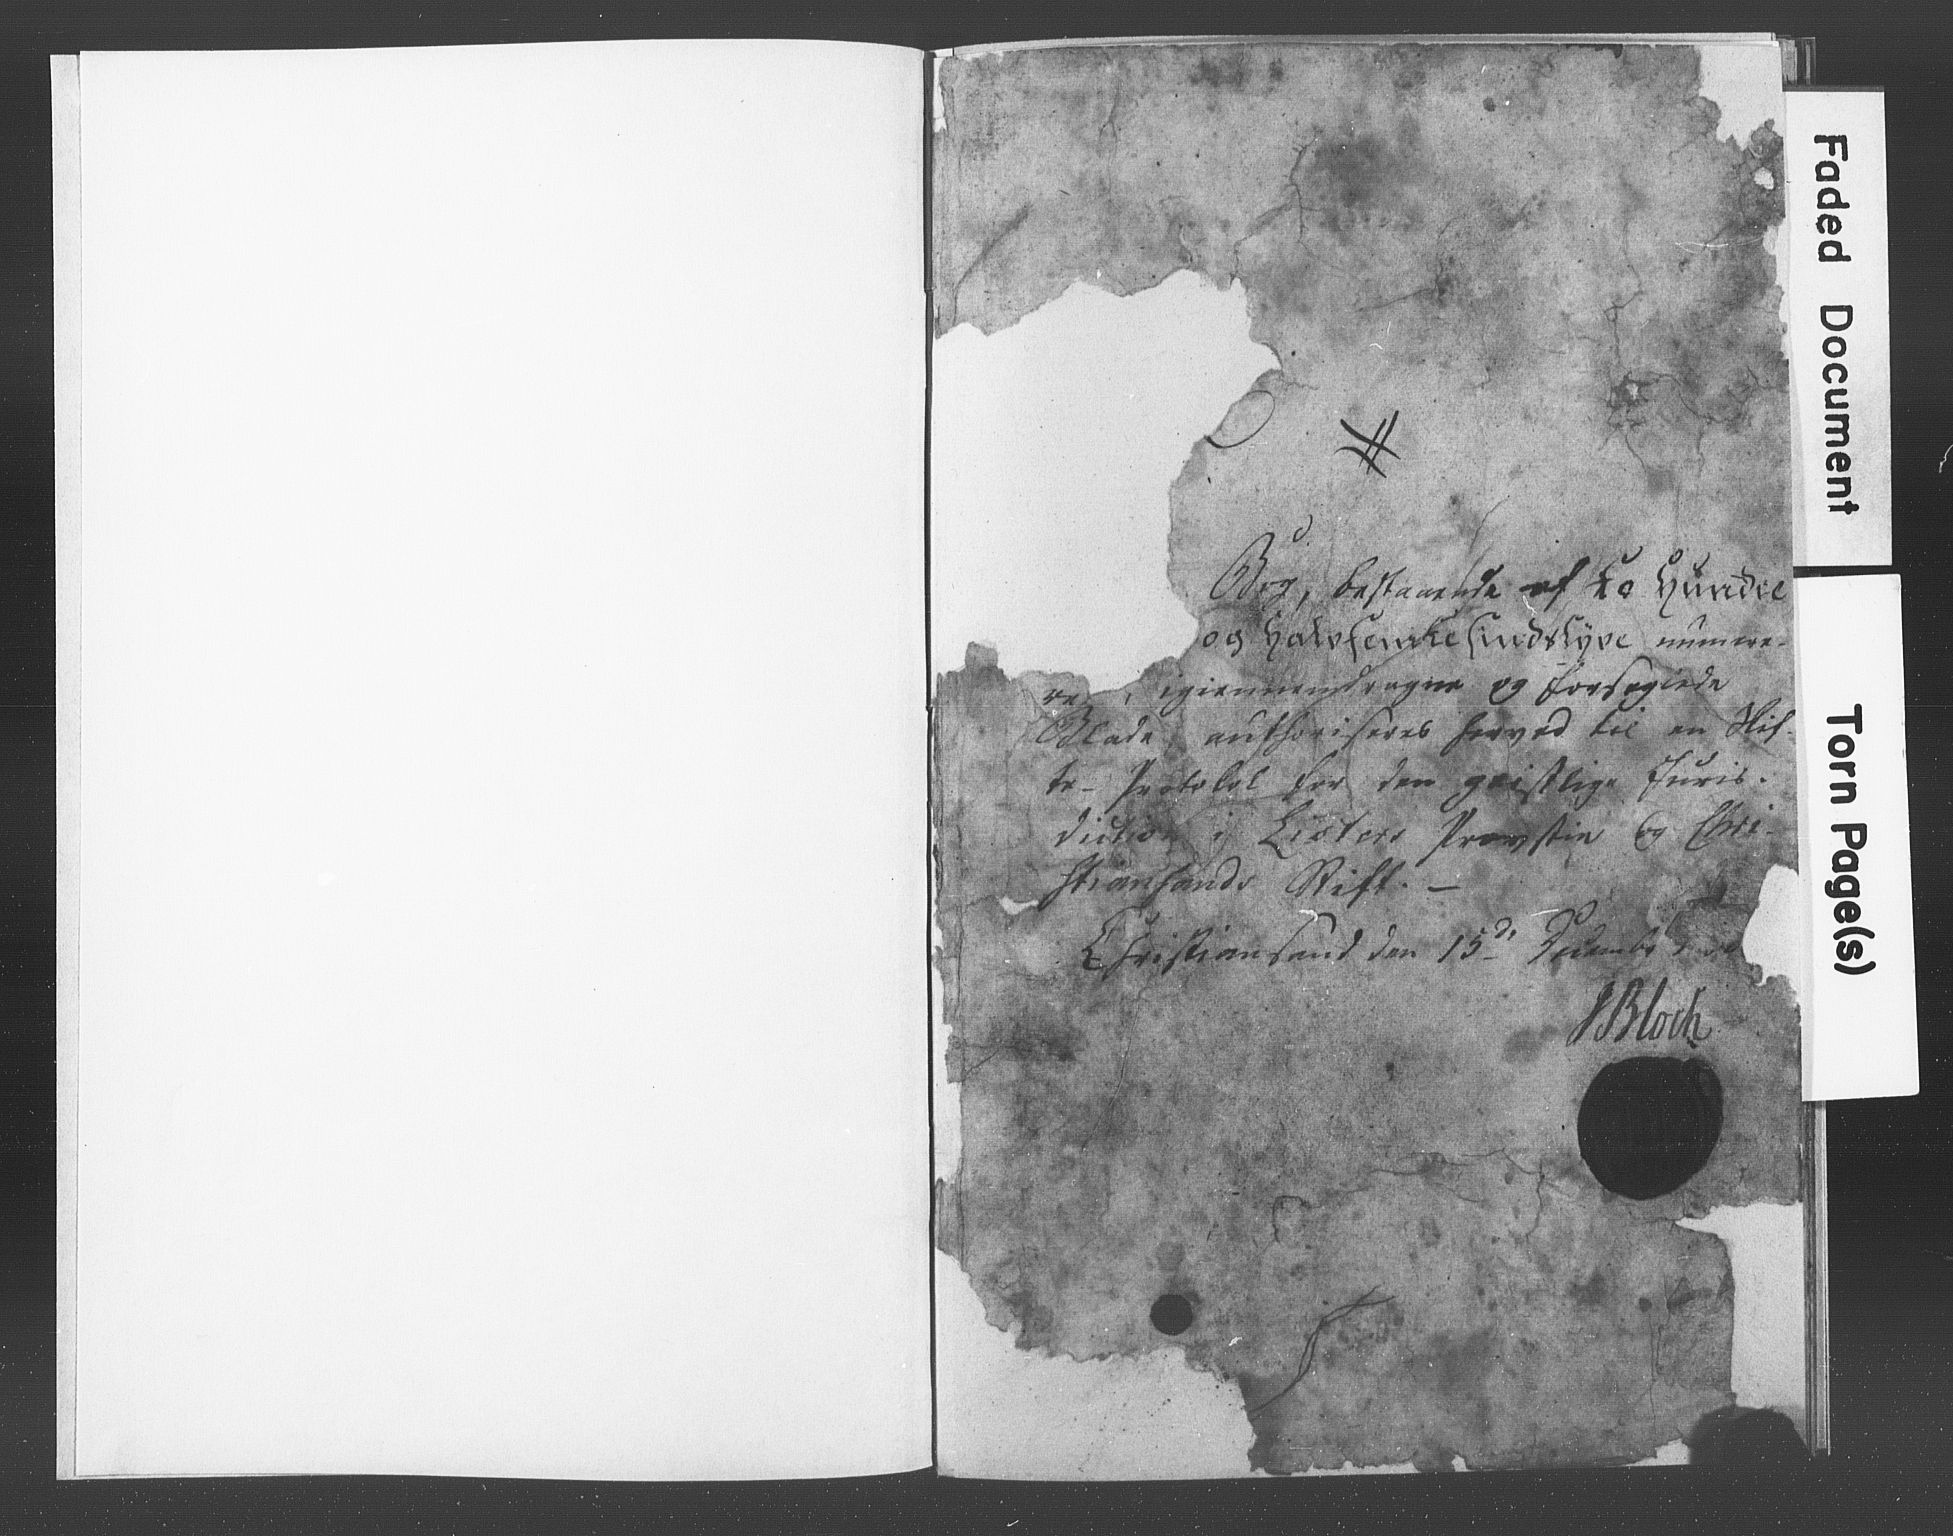 Bog, bestaaende af to Hundre
og Halvfemtesindstyve numere-
re , igiennemdragne og forseglede
Blade authoriseres herved til en Skif-
te-Protokol for den geistlige Juris-
diction i Listers Provstie og Chri-
stiansands Stift. –
Christiansand den 15de Decembr
PBloch
Faded Document
Torn Page(s)